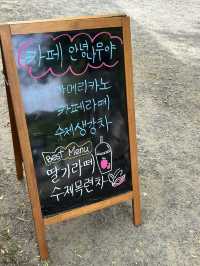 카페 안녕나무야
아메리카노
카페라떼
수제생강차
Best Menu
딸기라떼
수제목련차